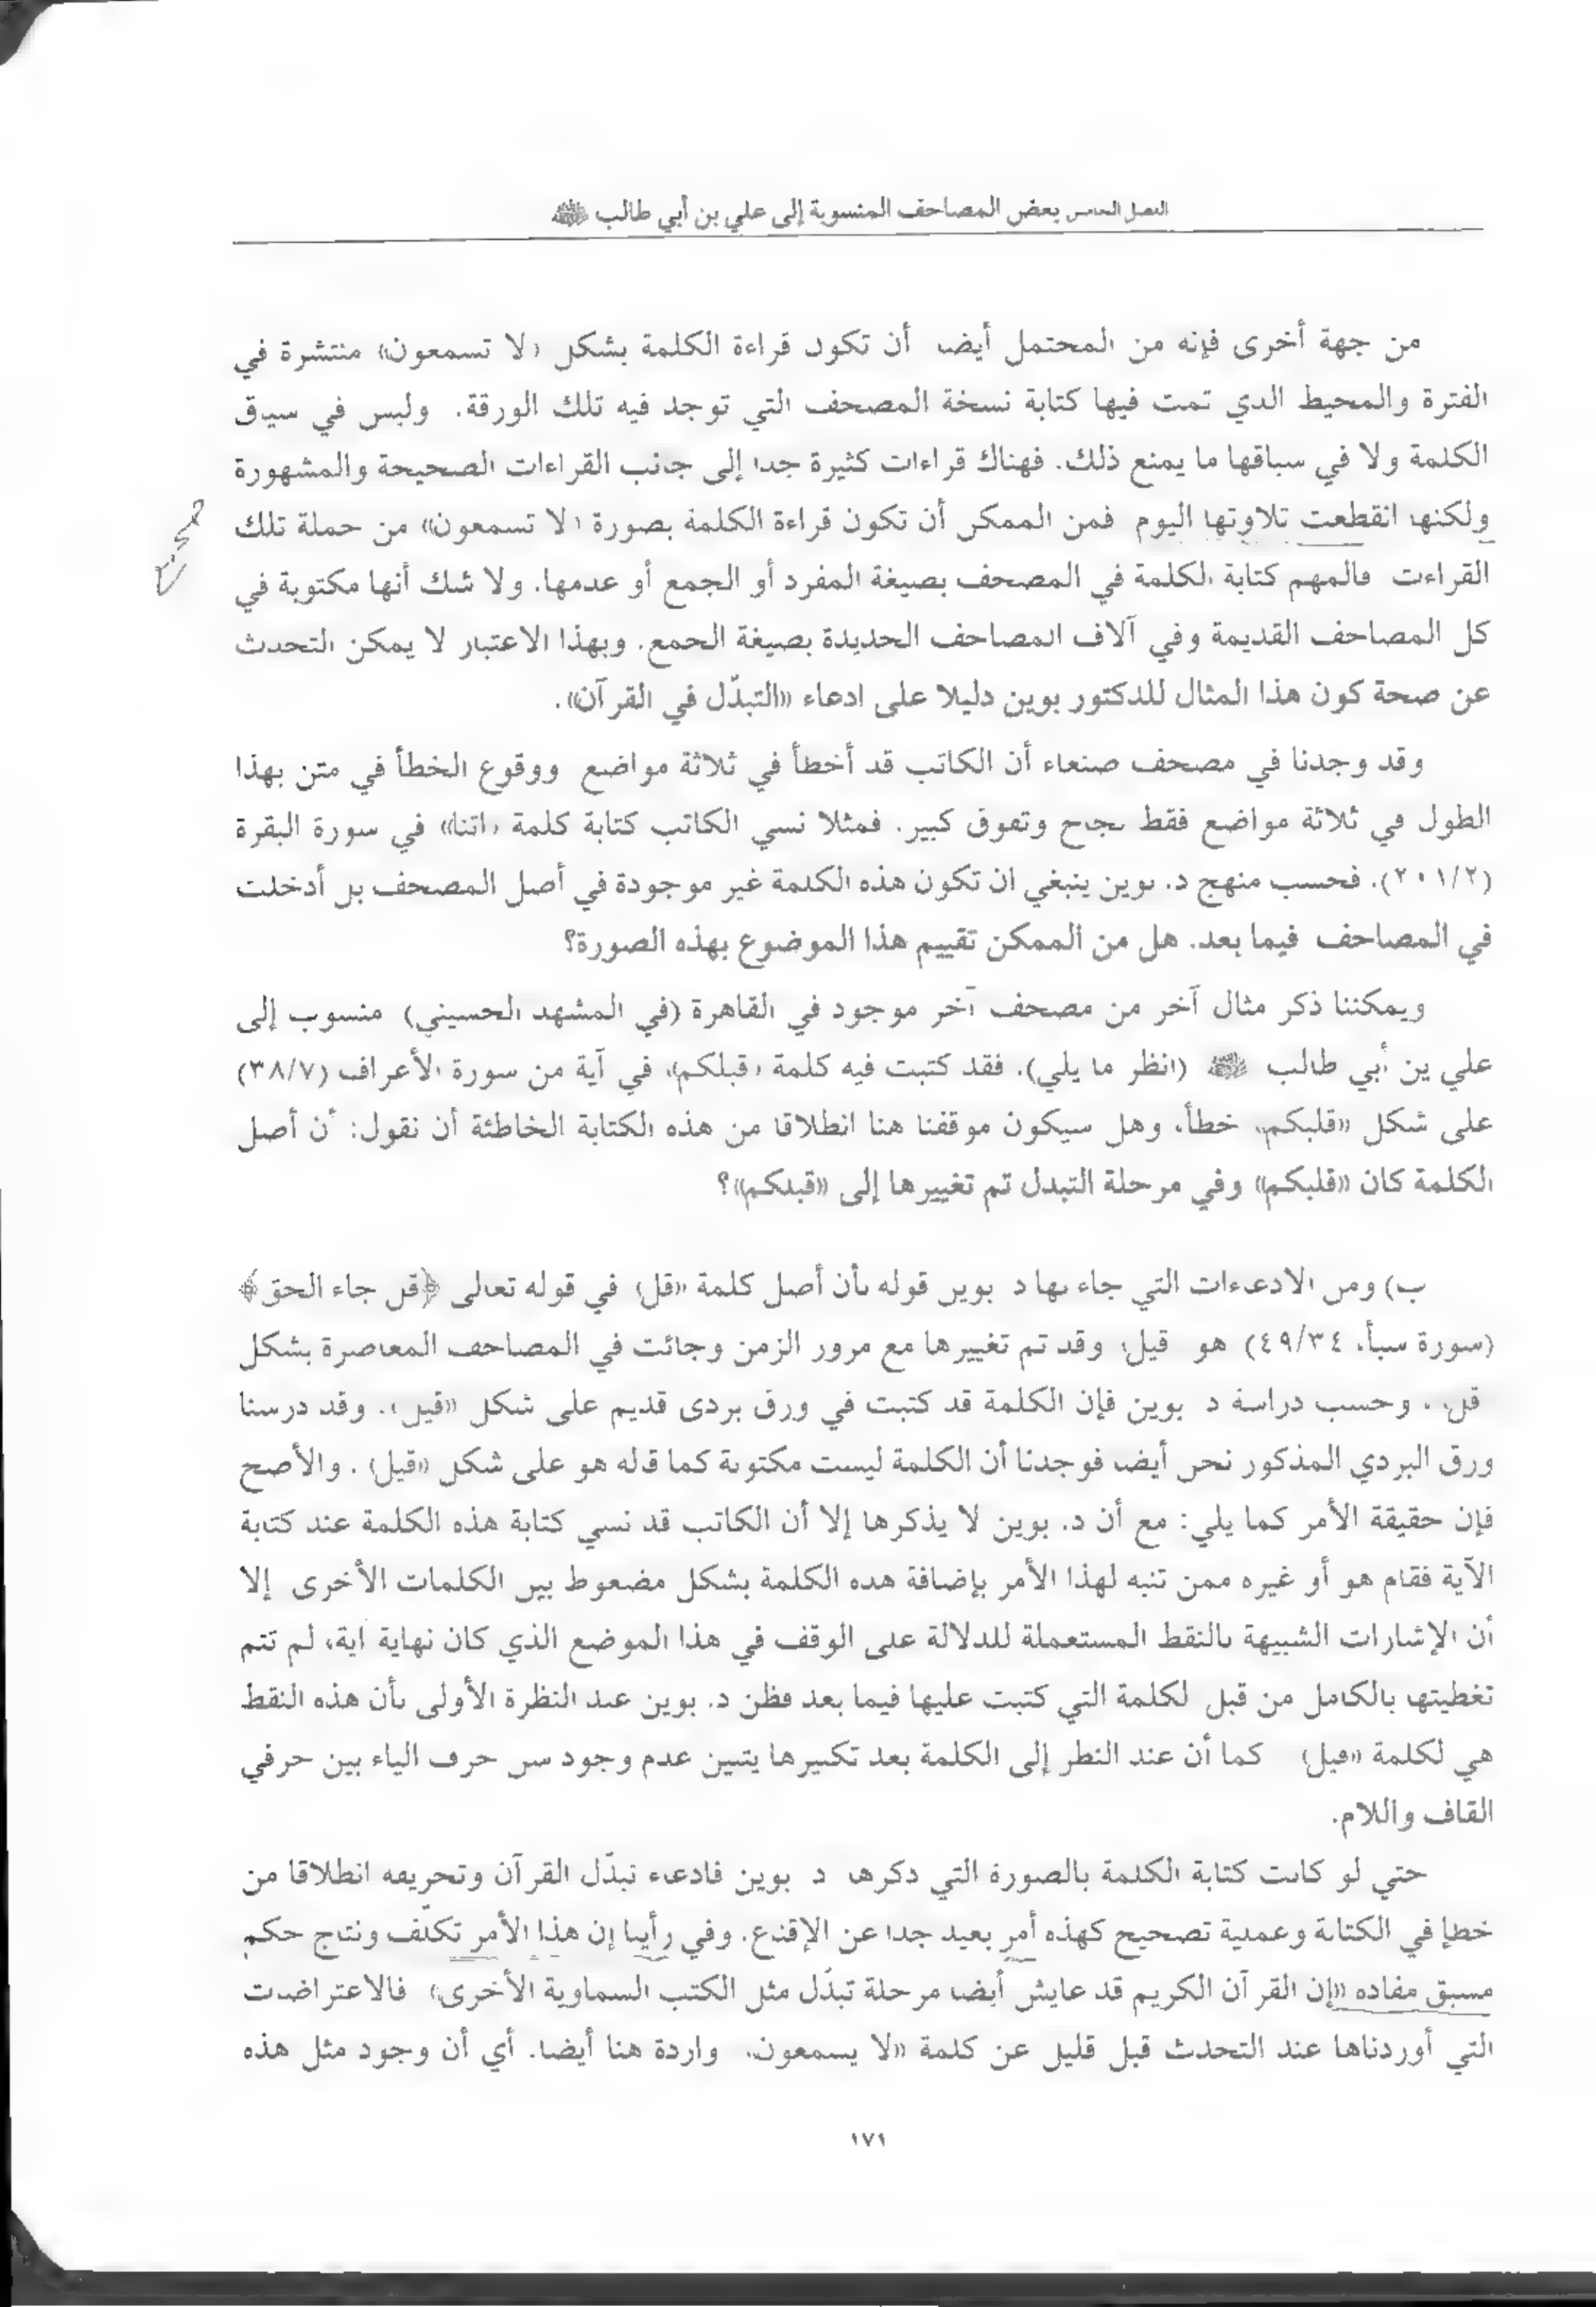 الفصل الخامس بعض المصاحف المنسوبة إلى علي بن أبي طالب ﷺ
من جهة أخرى فإنه من المحتمل أيضا أن تكون قراءة الكلمة بشكل «لا تسمعون» منتشرة في
الفترة والمحيط الذي تمت فيها كتابة نسخة المصحف التي توجد فيه تلك الورقة. وليس في سياق
الكلمة ولا في سباقها ما يمنع ذلك. فهناك قراءات كثيرة جدا إلى جانب القراءات الصحيحة والمشهورة
ولكنها انقطعت تلاوتها اليوم فمن الممكن أن تكون قراءة الكلمة بصورة «لا تسمعون» من جملة تلك
القراءت فالمهم كتابة الكلمة في المصحف بصيغة المفرد أو الجمع أو عدمها. ولا شك أنها مكتوبة في
كل المصاحف القديمة وفي آلاف المصاحف الجديدة بصيغة الجمع. وبهذا الاعتبار لا يمكن التحدث
عن صحة كون هذا المثال للدكتور بوين دليلا على ادعاء «التبدّل في القرآن».
وقد وجدنا في مصحف صنعاء أن الكاتب قد أخطأ في ثلاثة مواضع ووقوع الخطأ في متن بهذا
الطول في ثلاثة مواضع فقط نجاح وتفوق كبير. فمثلا نسي الكاتب كتابة كلمة «اتنا» في سورة البقرة
(٢٠١/٢). فحسب منهج د. بوين ينبغي ان تكون هذه الكلمة غير موجودة في أصل المصحف بل أدخلت
في المصاحف فيما بعد. هل من الممكن تقييم هذا الموضوع بهذه الصورة؟
ويمكننا ذكر مثال آخر من مصحف آخر موجود في القاهرة (في المشهد الحسيني) منسوب إلى
علي ين أبي طالب (انظر ما يلي). فقد كتبت فيه كلمة «قبلكم» في آية من سورة الأعراف (٣٨/٧)
على شكل «قلبكم» خطأ، وهل سيكون موقفنا هنا انطلاقا من هذه الكتابة الخاطئة أن نقول: أن أصل
الكلمة كان «قلبكم» وفي مرحلة التبدل تم تغييرها إلى «قبلكم»؟
ب) ومن الادعاءات التي جاء بها د بوين قوله بأن أصل كلمة «قل» في قوله تعالى ﴿قل جاء الحق﴾
(سورة سبأ، ٤٩/٣٤) هو قيل، وقد تم تغييرها مع مرور الزمن وجائت في المصاحف المعاصرة بشكل
قل. وحسب دراسة د بوين فإن الكلمة قد كتبت في ورق بردى قديم على شكل «قيل». وقد درسنا
ورق البردي المذكور نحن أيضا فوجدنا أن الكلمة ليست مكتوبة كما قاله هو على شكل «قيل». والأصح
فإن حقيقة الأمر كما يلي: مع أن د. بوين لا يذكرها إلا أن الكاتب قد نسي كتابة هذه الكلمة عند كتابة
الآية فقام هو أو غيره ممن تنبه لهذا الأمر بإضافة هده الكلمة بشكل مضغوط بين الكلمات الأخرى إلا
أن الإشارات الشبيهة بالنقط المستعملة للدلالة على الوقف في هذا الموضع الذي كان نهاية آية، لم تتم
تغطيتها بالكامل من قبل لكلمة التي كتبت عليها فيما بعد فظن د. بوين عند النظرة الأولى بأن هذه النقط
هي لكلمة «قيل» كما أن عند النظر إلى الكلمة بعد تكبيرها يتبين عدم وجود سن حرف الياء بين حرفي
القاف واللام.
حتي لو كانت كتابة الكلمة بالصورة التي ذكرها د بوين فادعاء تبدّل القرآن وتحريفه انطلاقا من
خطإ في الكتابة وعملية تصحيح كهذه أمر بعيد جدا عن الإقناع. وفي رأينا إن هذا الأمر تكلّف ونتاج حكم
مسبق مفاده «إن القرآن الكريم قد عايش أيضا مرحلة تبدّل مثل الكتب السماوية الأخرى» فالاعتراضت
التي أوردناها عند التحدث قبل قليل عن كلمة «لا يسمعون» واردة هنا أيضا. أي أن وجود مثل هذه
١٧١